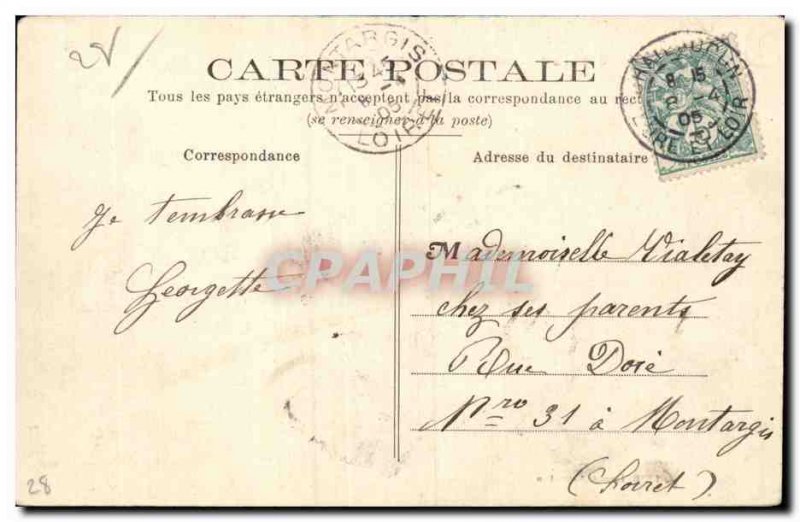 28
CARTE POSTALE
Tous les pays étrangers n'acceptent pas la correspondance au rect
(se renseigner à la poste)
MONTARGIS
05
LOIRET
CHATEAUDUN
8 15
05
EURE ET LOIR
Correspondance
Adresse du destinataire
Je t'embrasse
Georgette
Mademoiselle Vialetay
chez ses parents
Rue Doré
Nro 31 à Montargis
(Loiret)
CPAPHIL
28